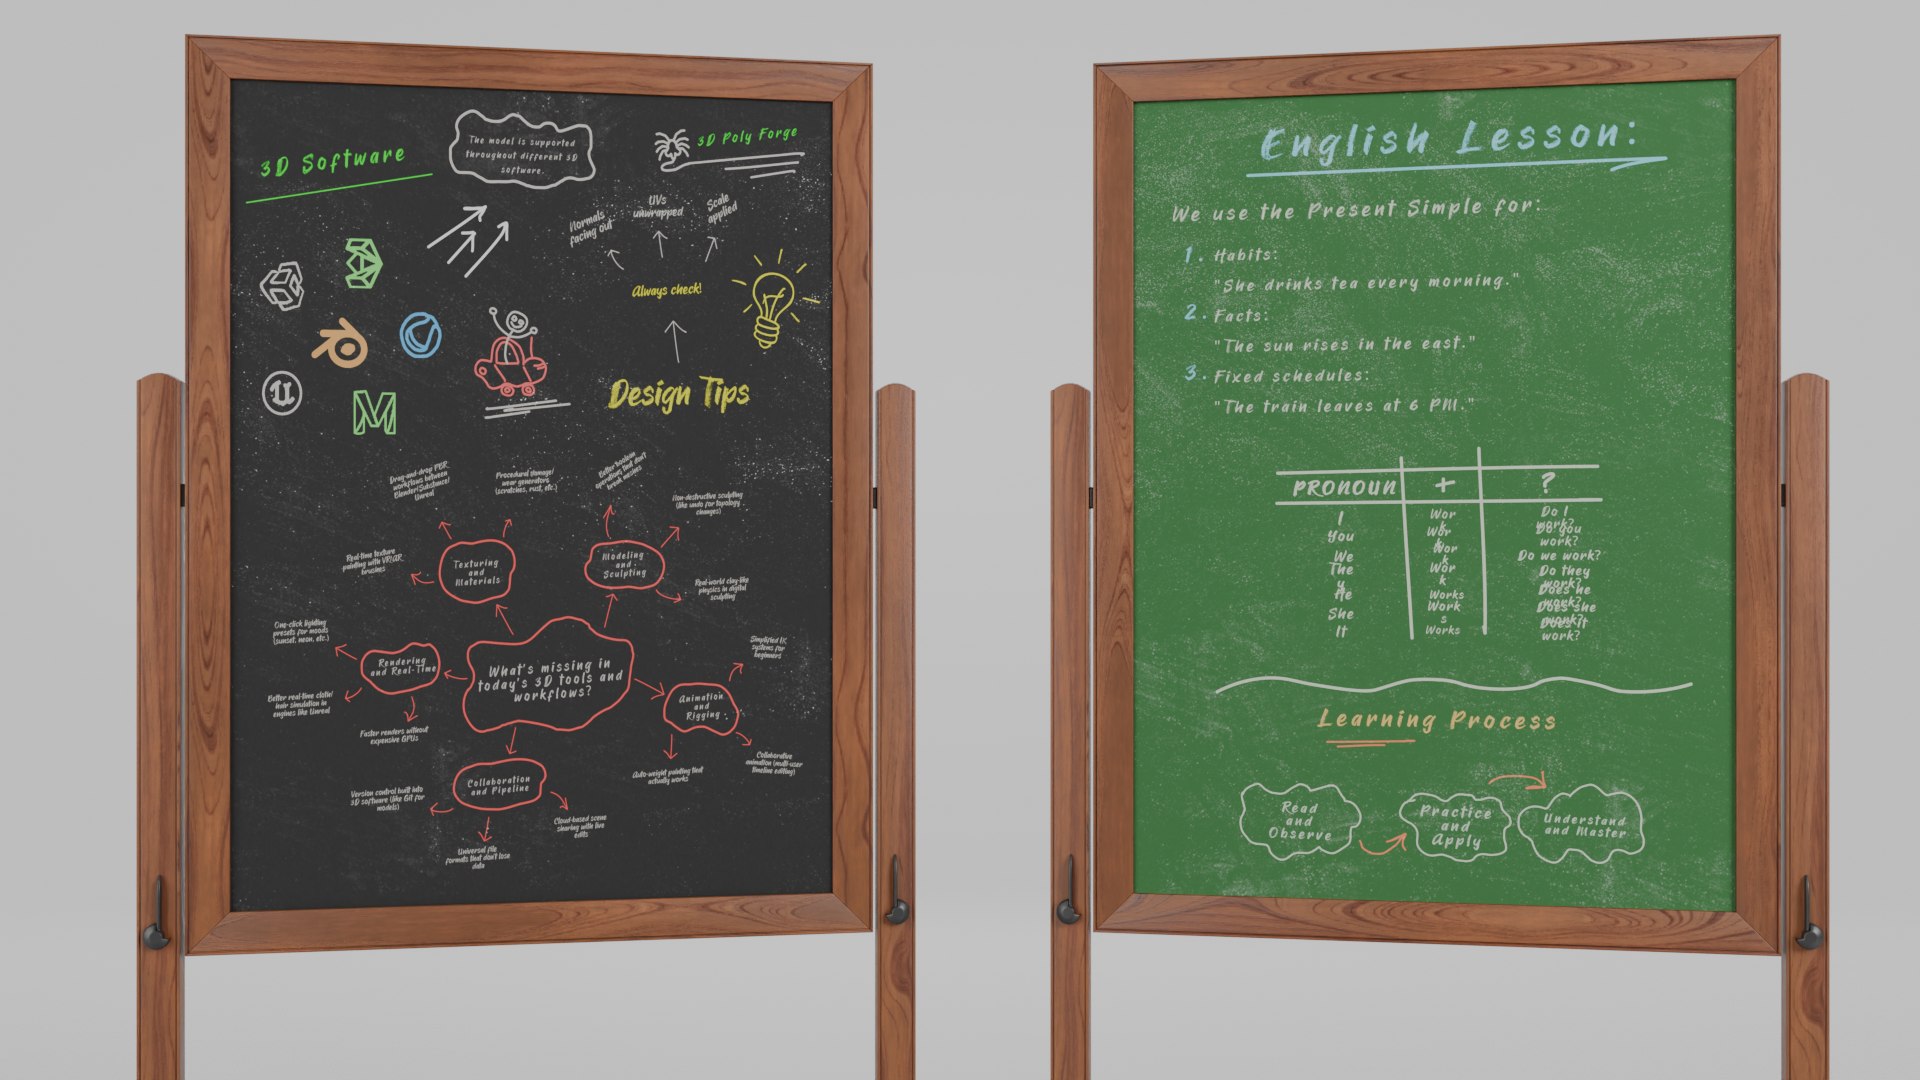 3D Software
The model is supported
throughout different 3D
software.
3D Poly Forge
Normals
facing out
UVs
unwrapped
Scale
applied
Always check!
Design Tips
Drag-and-drop PBR
workflows between
Blender/Substance/
Unreal
Procedural damage/
wear generators
(scratches, rust, etc.)
Better boolean
operations that don't
break meshes
Non-destructive sculpting
(like undo for topology
changes)
Real-time texture
painting with VR/AR
brushes
Texturing
and
Materials
Modeling
and
Sculpting
Real-world clay-like
physics in digital
sculpting
One-click lighting
presets for moods
(sunset, neon, etc.)
Rendering
and Real-Time
What's missing in
today's 3D tools and
workflows?
Simplified IK
systems for
beginners
Better real-time cloth/
hair simulation in
engines like Unreal
Faster renders without
expensive GPUs
Animation
and
Rigging
Collaborative
animation (multi-user
timeline editing)
Auto-weight painting that
actually works
Collaboration
and Pipeline
Version control built into
3D software (like Git for
models)
Cloud-based scene
sharing with live
edits
Universal file
formats that don't lose
data
English Lesson:
We use the Present Simple for:
1. Habits:
"She drinks tea every morning."
2. Facts:
"The sun rises in the east."
3. Fixed schedules:
"The train leaves at 6 PM."
PRONOUN + ?
I
You
We
The
y
He
She
It
Wor
k
Wor
k
Wor
k
Wor
k
Works
Work
s
Works
Do I
work?
Do you
work?
Do we work?
Do they
work?
Does he
work?
Does she
work?
Does it
work?
Learning Process
Read
and
Observe
Practice
and
Apply
Understand
and Master